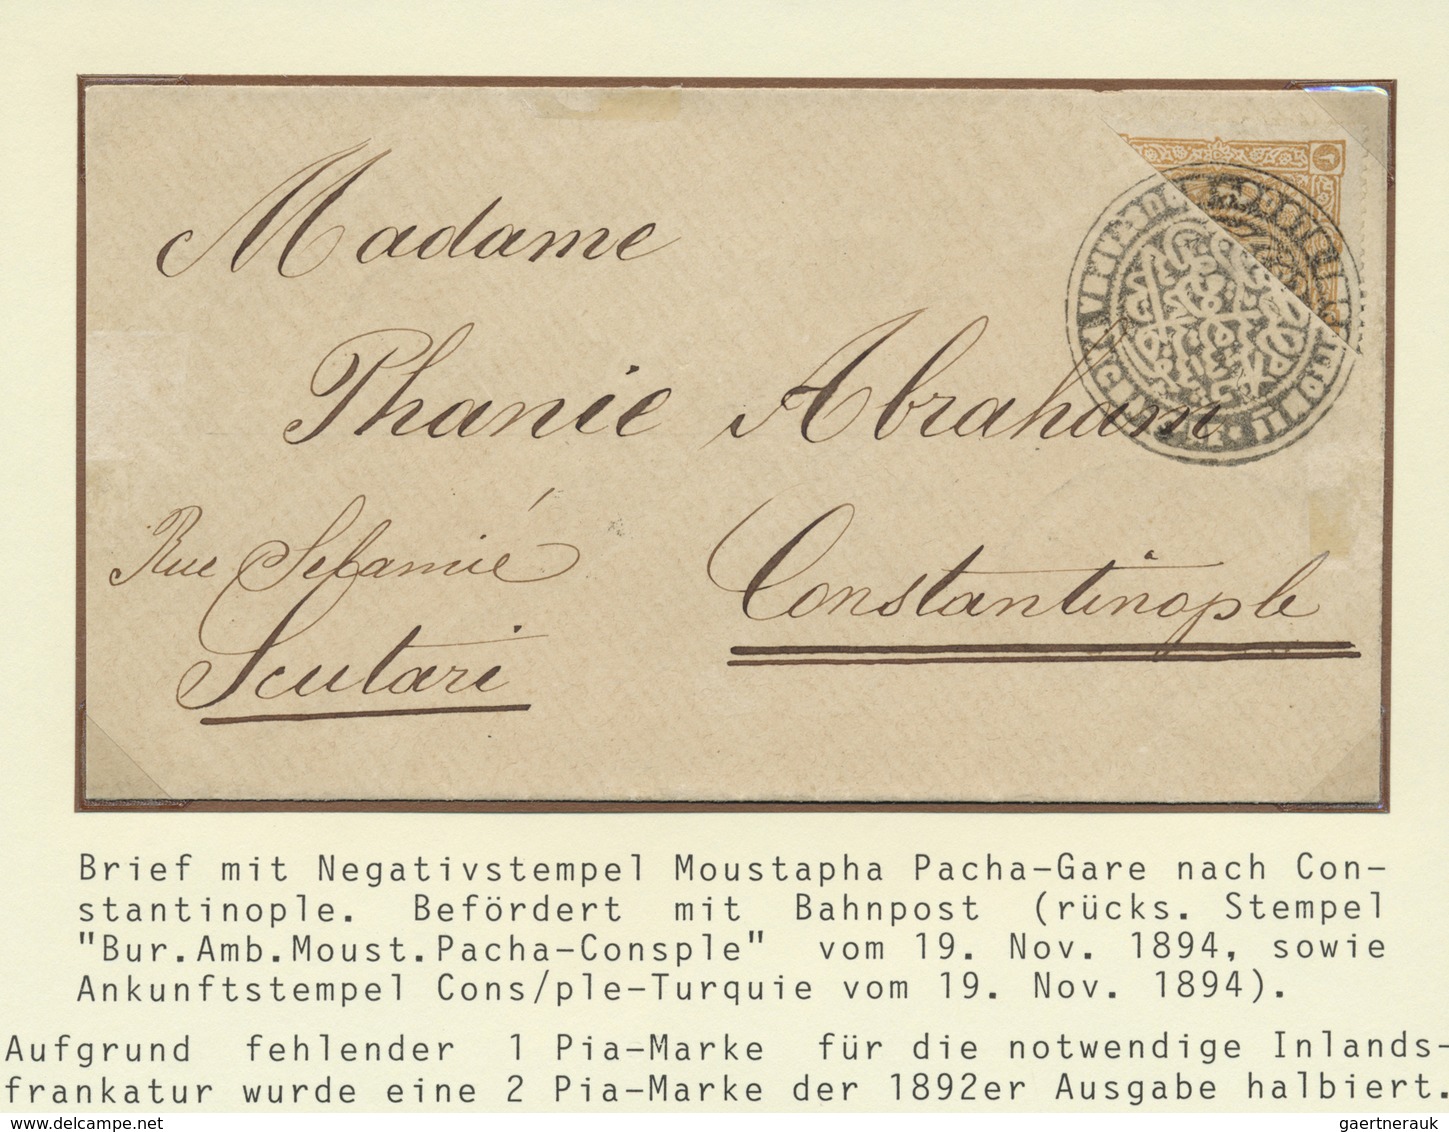 Madame
Phanie Abraham
Rue Selamié
Constantinople
Scutari
Brief mit Negativstempel Moustapha Pacha-Gare nach Con-
stantinople. Befördert mit Bahnpost (rücks. Stempel
"Bur.Amb.Moust.Pacha-Consple" vom 19. Nov. 1894, sowie
Ankunftstempel Cons/ple-Turquie vom 19. Nov. 1894).
Aufgrund fehlender 1 Pia-Marke für die notwendige Inlands-
frankatur wurde eine 2 Pia-Marke der 1892er Ausgabe halbiert.
www.delcampe.net
gaertnerauk